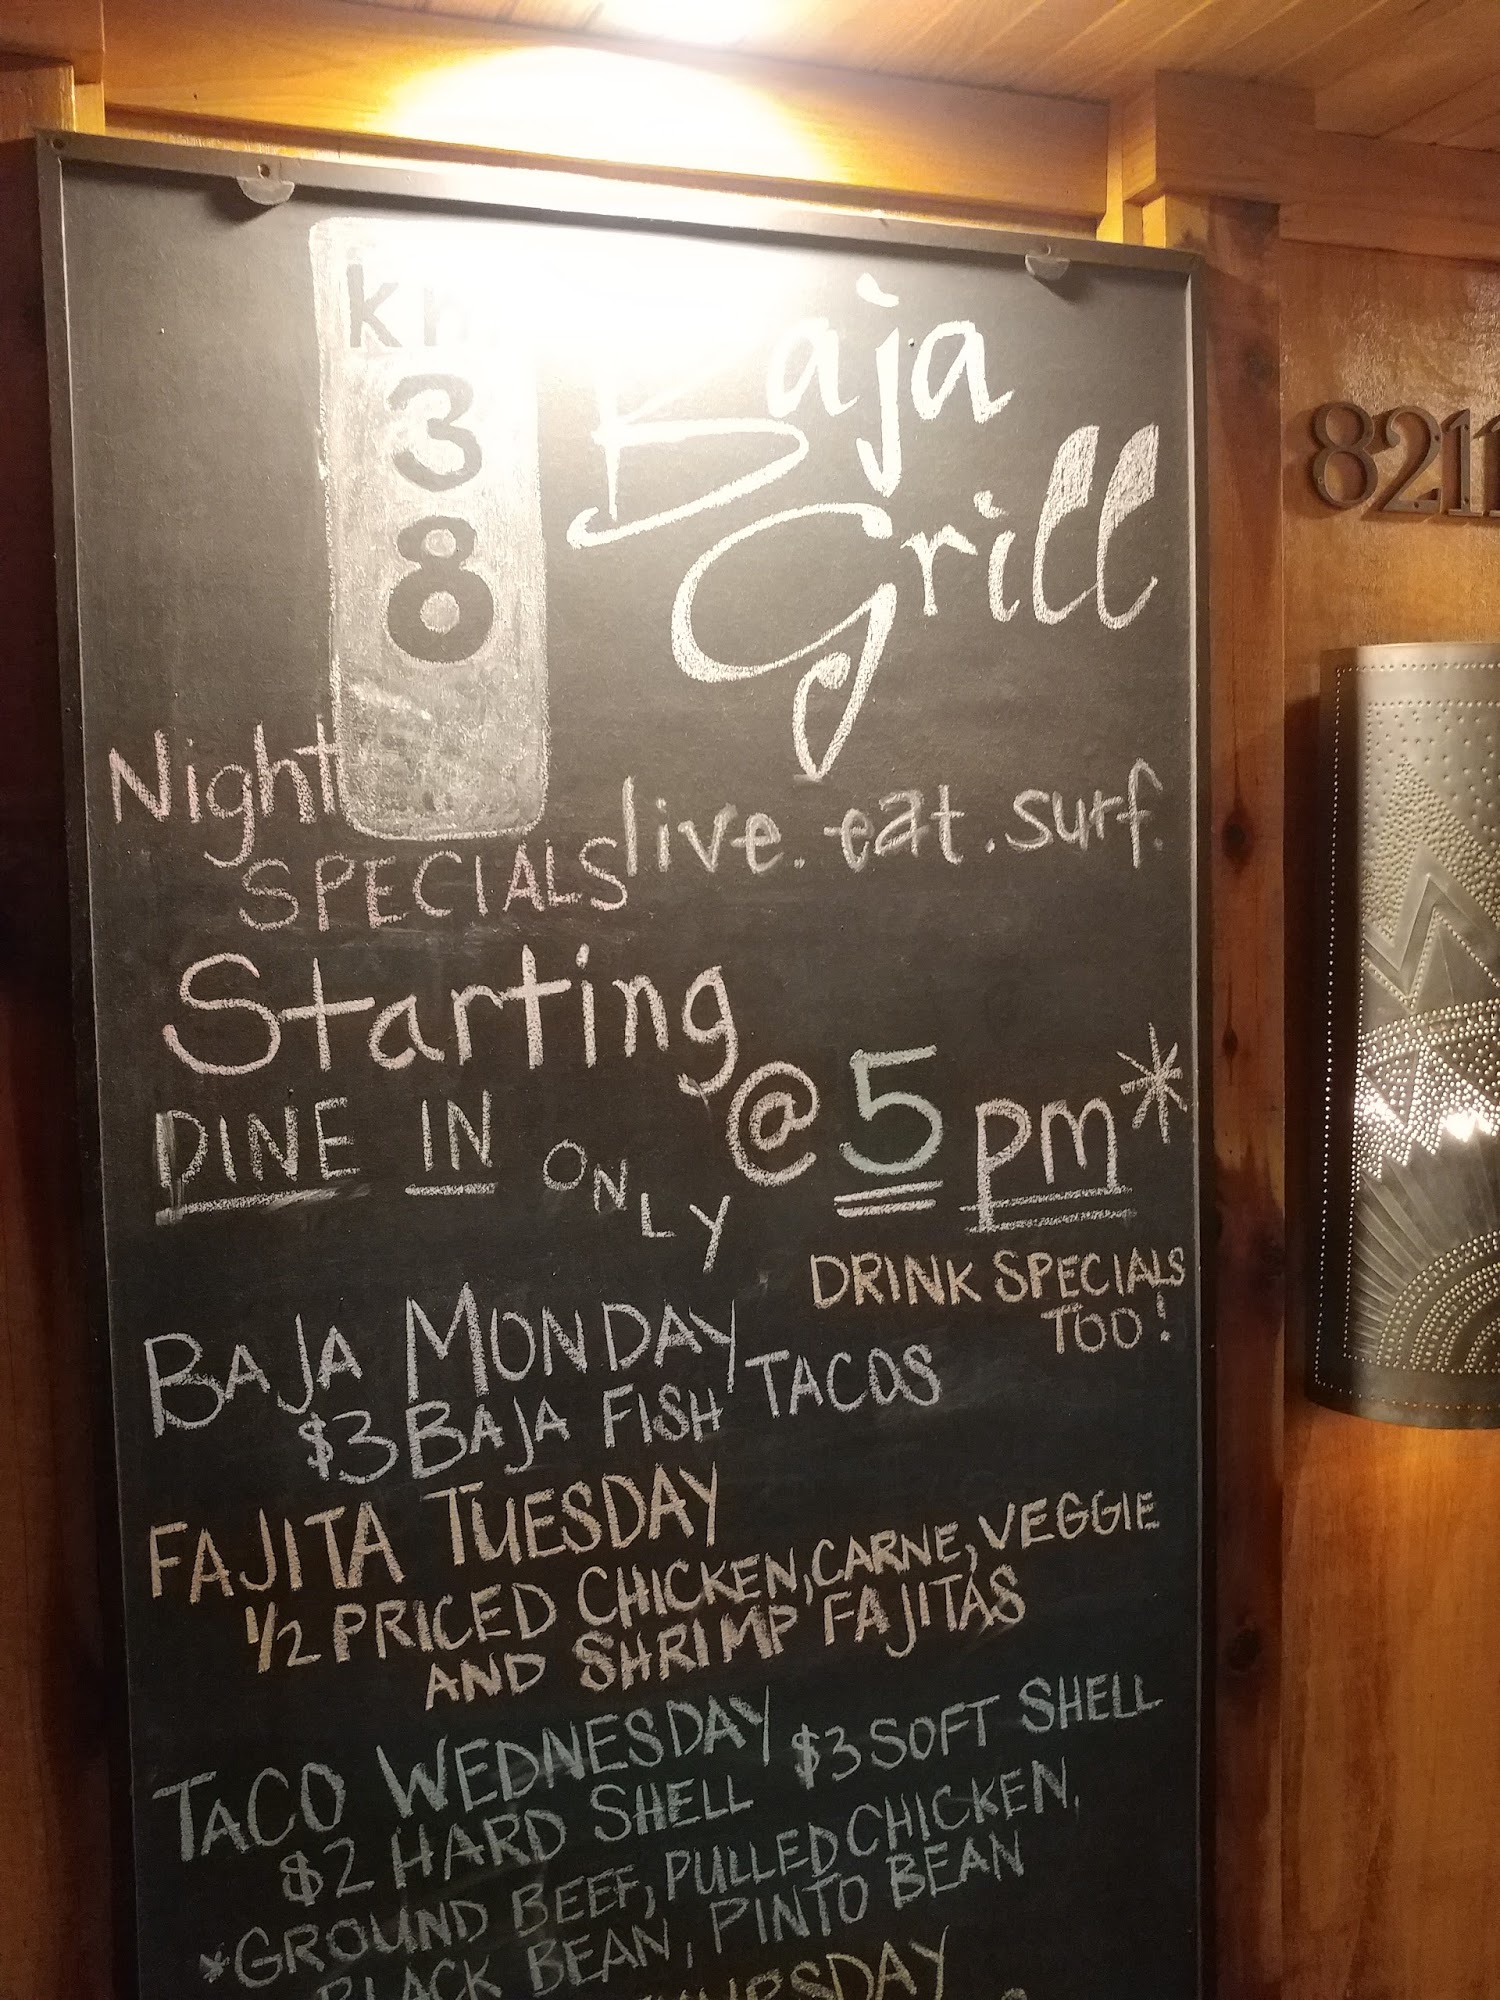 km
3
8
Baja
Grill
8211
live. eat. surf.
Night
SPECIALS
Starting
@ 5 pm*
DINE IN ONLY
DRINK SPECIALS
TOO!
BAJA MONDAY
$3 BAJA FISH TACOS
FAJITA TUESDAY
1/2 PRICED CHICKEN, CARNE, VEGGIE
AND SHRIMP FAJITAS
TACO WEDNESDAY
$2 HARD SHELL $3 SOFT SHELL
*GROUND BEEF, PULLED CHICKEN,
BLACK BEAN, PINTO BEAN
THURSDAY